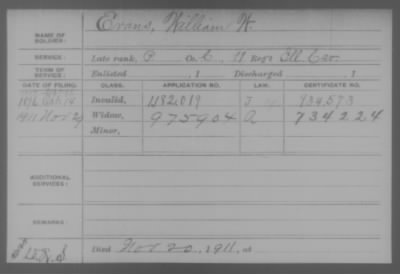 Evans, William W.
NAME OF SOLDIER:
SERVICE: Late rank, P Co. C, 11 Reg't Ill. Cav.
TERM OF SERVICE: Enlisted , 1 Discharged , 1
DATE OF FILING. CLASS. APPLICATION NO. LAW. CERTIFICATE NO.
Invalid, 1182,019 J
1911 Nov 29 Widow, 975904 A 734224
Minor,
ADDITIONAL SERVICES:
REMARKS:
Died Nov 20, 1911, at